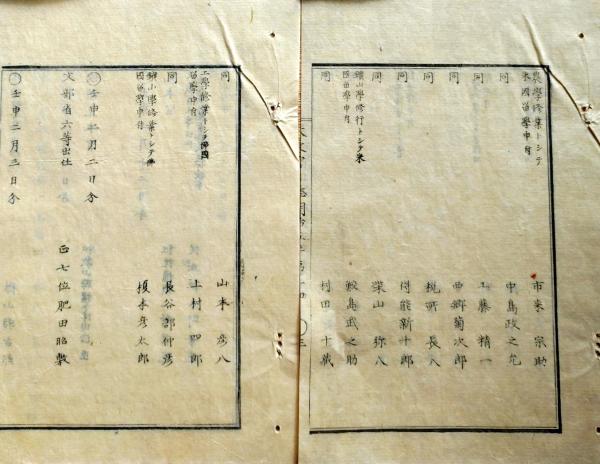 農學修業トシテ
米國留學申付
市來 宗助
同 中島政之允
同 藤 精一
同 西郷菊次郎
同 税所 長八
同 得能新十郎
同 柴山 弥八
鑛山學修行トシテ米
國留學申付
鮫島武之助
同 村田 十蔵
同 山本 彦八
工學修業トシテ佛國
留學申付
上村 四郎
同 長谷部仲彦
鑛山學修業トシテ佛
國留學申付
榎本彦太郎
壬申 二月二日分
文部省六等出仕
正七位肥田昭敷
壬申二月三日分